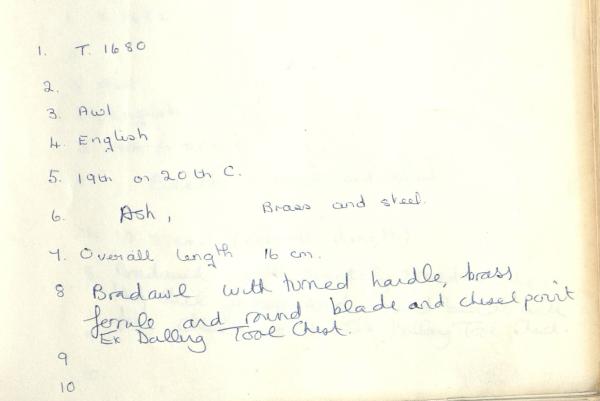 1. T. 1680
2.
3. Awl
4. English
5. 19th or 20th C.
6. Ash, Brass and steel.
7. Overall length 16 cm.
8 Bradawl with turned handle, brass
ferrule and round blade and chisel point
Ex Dalling Tool Chest.
9
10